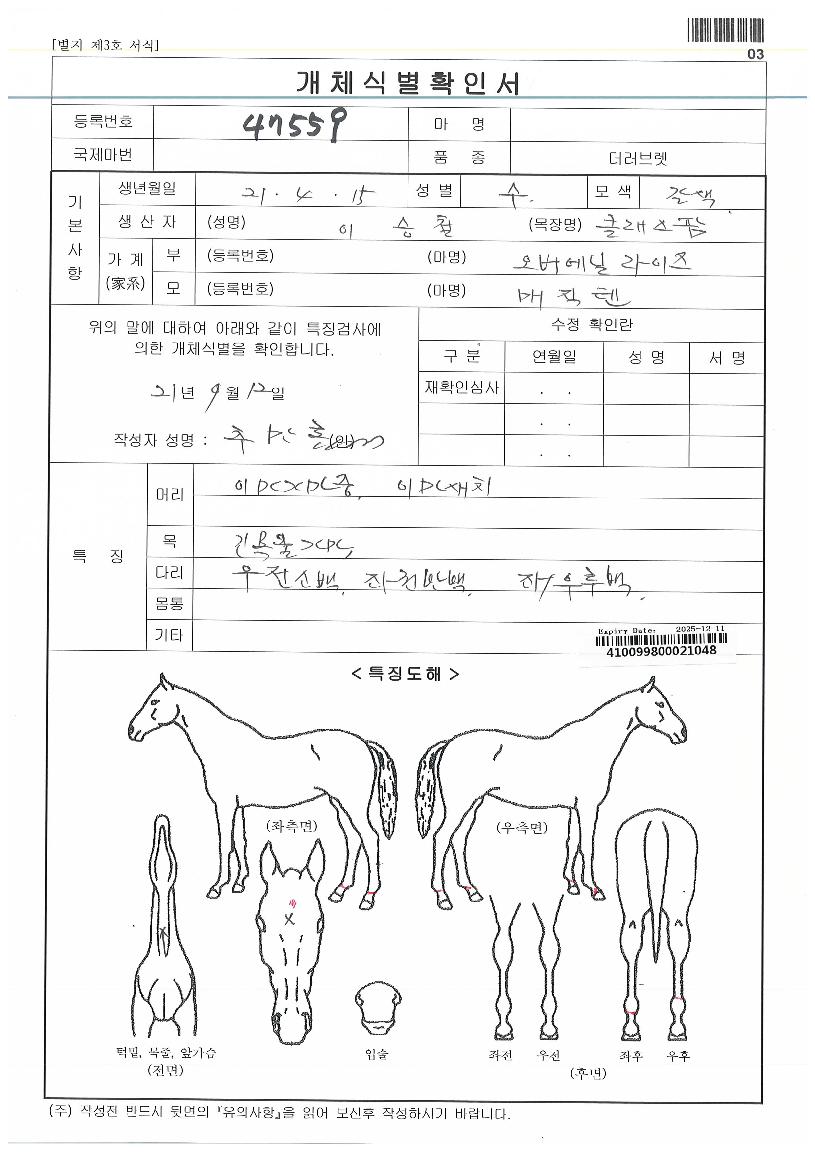 [별지 제3호 서식]
03
개체식별확인서
등록번호 47559 마 명
국제마번 품 종 더러브렛
기본사항
생년월일 21 . 4 . 15 성 별 수. 모 색 갈색
생 산 자 (성명) 이 승 철 (목장명) 클래스팜
가 계 (家系)
부 (등록번호) (마명) 오버에닐 라이즈
모 (등록번호) (마명) 매직텐
위의 말에 대하여 아래와 같이 특징검사에
의한 개체식별을 확인합니다.
21년 9월 12일
작성자 성명 : (인)
수정 확인란
구 분 연월일 성 명 서 명
재확인심사 . .
. .
. .
특 징
머리
목
다리 우전소백, 좌/우후백.
몸통
기타
Expiry Date: 2025-12-11
410099800021048
< 특징도해 >
(좌측면) (우측면)
턱밑, 목줄, 앞가슴
(전면)
입술
좌전 우전 좌후 우후
(후면)
(주) 작성전 반드시 뒷면의 『유의사항』을 읽어 보신후 작성하시기 바랍니다.